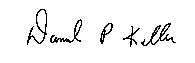 Daniel P Keller